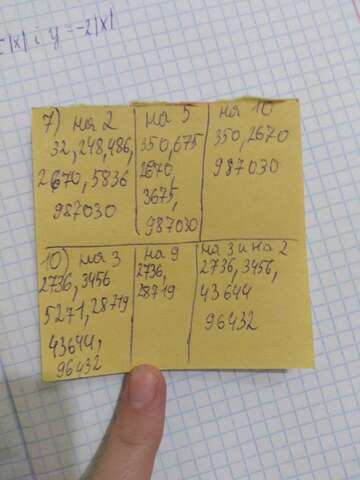 |x| i y = -2|x|
7) на 2
32, 248, 486,
2670, 5836
987030
на 5
350, 675
2670,
3675,
987030
на 10
350, 2670
987030
10) на 3
2736, 3456
5271, 28719
43644,
96432
на 9
2736,
28719
на 3 и на 2
2736, 3456,
43644
96432